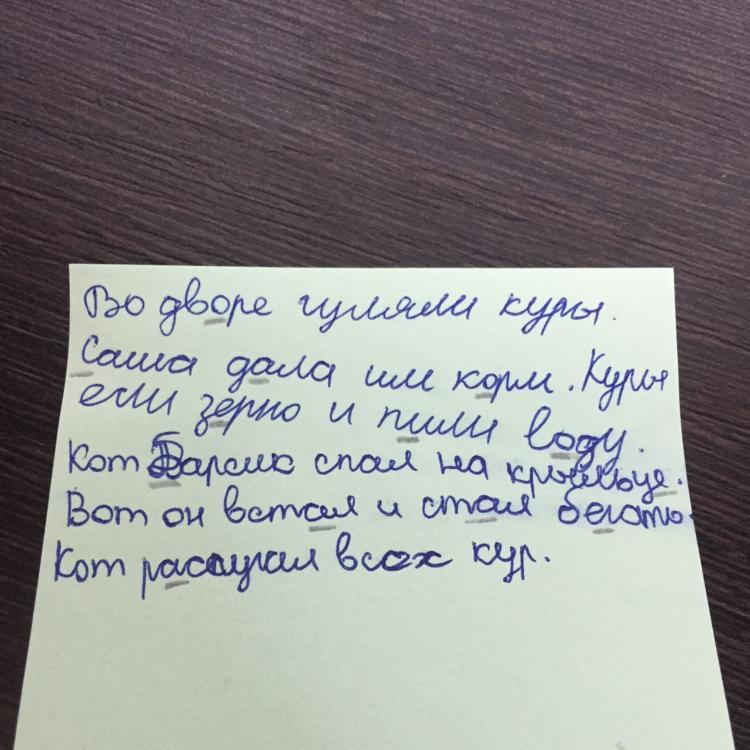 Во дворе гуляли куры.
Саша дала им корм. Куры
ели зерно и пили воду.
Кот Барсик спал на крыльце.
Вот он встал и стал бегать.
Кот распугал всех кур.